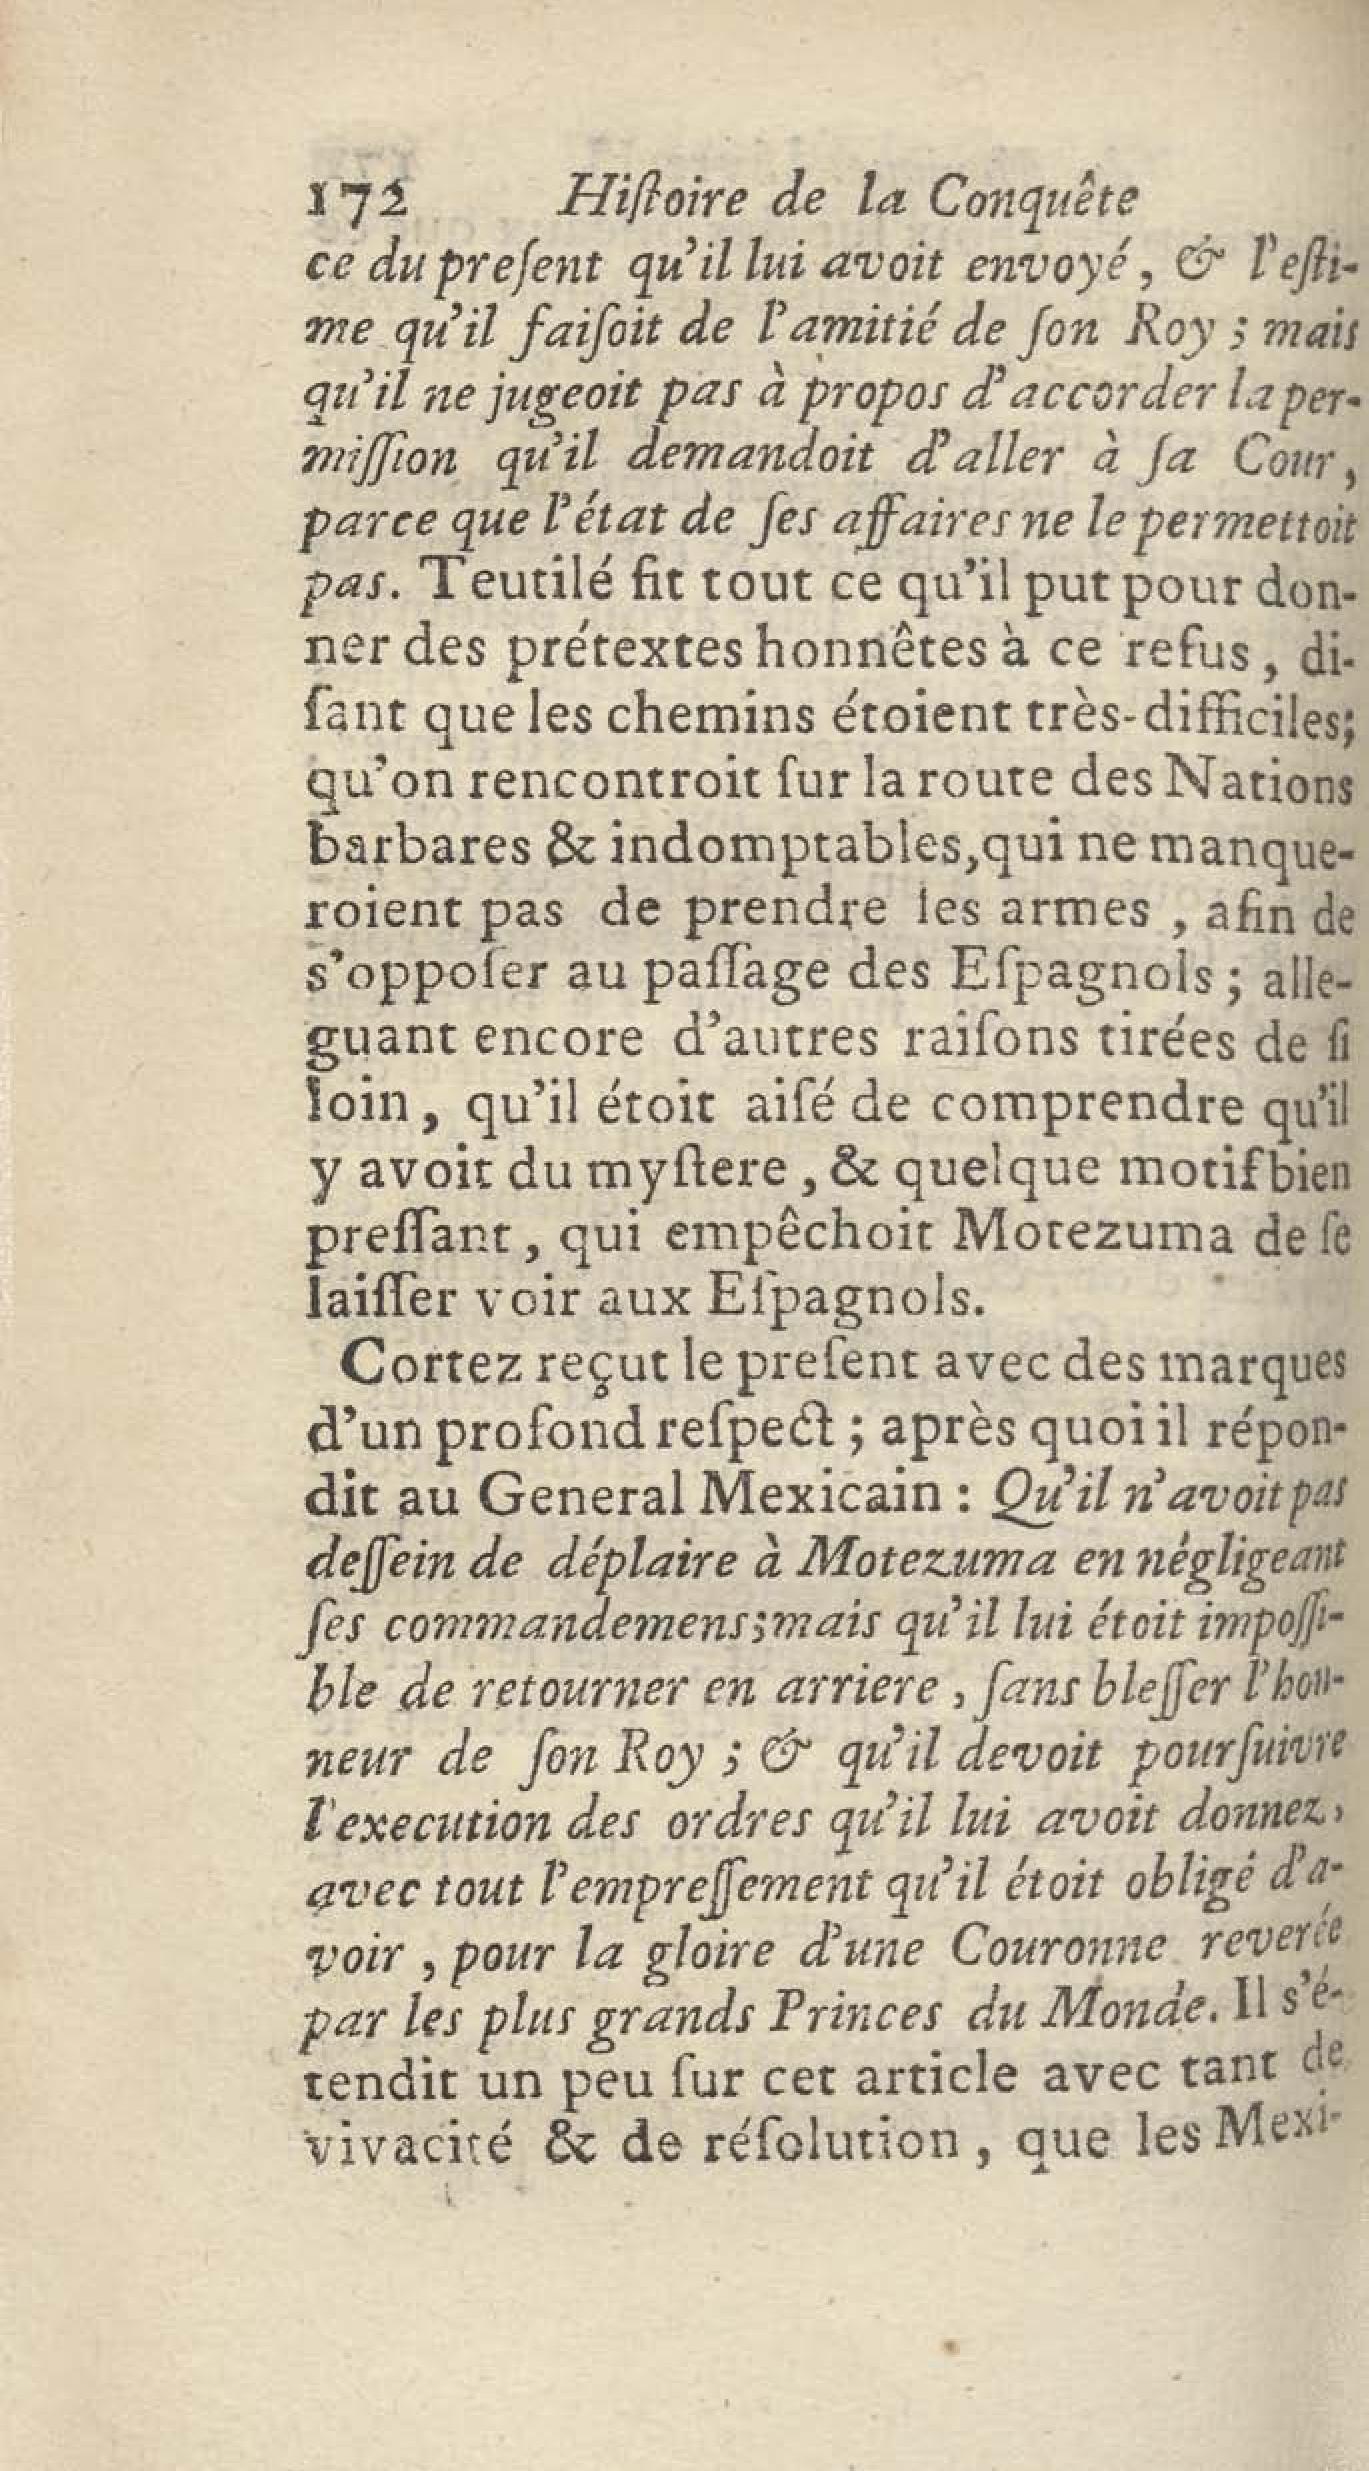 172 Hiſtoire de la Conquête
ce du preſent qu'il lui avoit envoyé, & l'eſti-
me qu'il faiſoit de l'amitié de ſon Roy ; mais
qu'il ne jugeoit pas à propos d'accorder la per-
miſſion qu'il demandoit d'aller à ſa Cour,
parce que l'état de ſes affaires ne le permettoit
pas. Teutilé fit tout ce qu'il put pour don-
ner des prétextes honnêtes à ce refus, di-
ſant que les chemins étoient très-difficiles;
qu'on rencontroit ſur la route des Nations
barbares & indomptables,qui ne manque-
roient pas de prendre les armes , afin de
s'oppoſer au paſſage des Eſpagnols ; alle-
guant encore d'autres raiſons tirées de ſi
loin, qu'il étoit aiſé de comprendre qu'il
y avoit du myſtere , & quelque motif bien
preſſant, qui empêchoit Motezuma de ſe
laiſſer voir aux Eſpagnols.
Cortez reçut le preſent avec des marques
d'un profond reſpect ; après quoi il répon-
dit au General Mexicain : Qu'il n'avoit pas
deſſein de déplaire à Motezuma en négligeant
ſes commandemens;mais qu'il lui étoit impoſſi-
ble de retourner en arriere , ſans bleſſer l'hon-
neur de ſon Roy ; & qu'il devoit pourſuivre
l'execution des ordres qu'il lui avoit donnez,
avec tout l'empreſſement qu'il étoit obligé d'a-
voir , pour la gloire d'une Couronne reverée
par les plus grands Princes du Monde. Il s'é-
tendit un peu ſur cet article avec tant de
vivacité & de réſolution, que les Mexi-